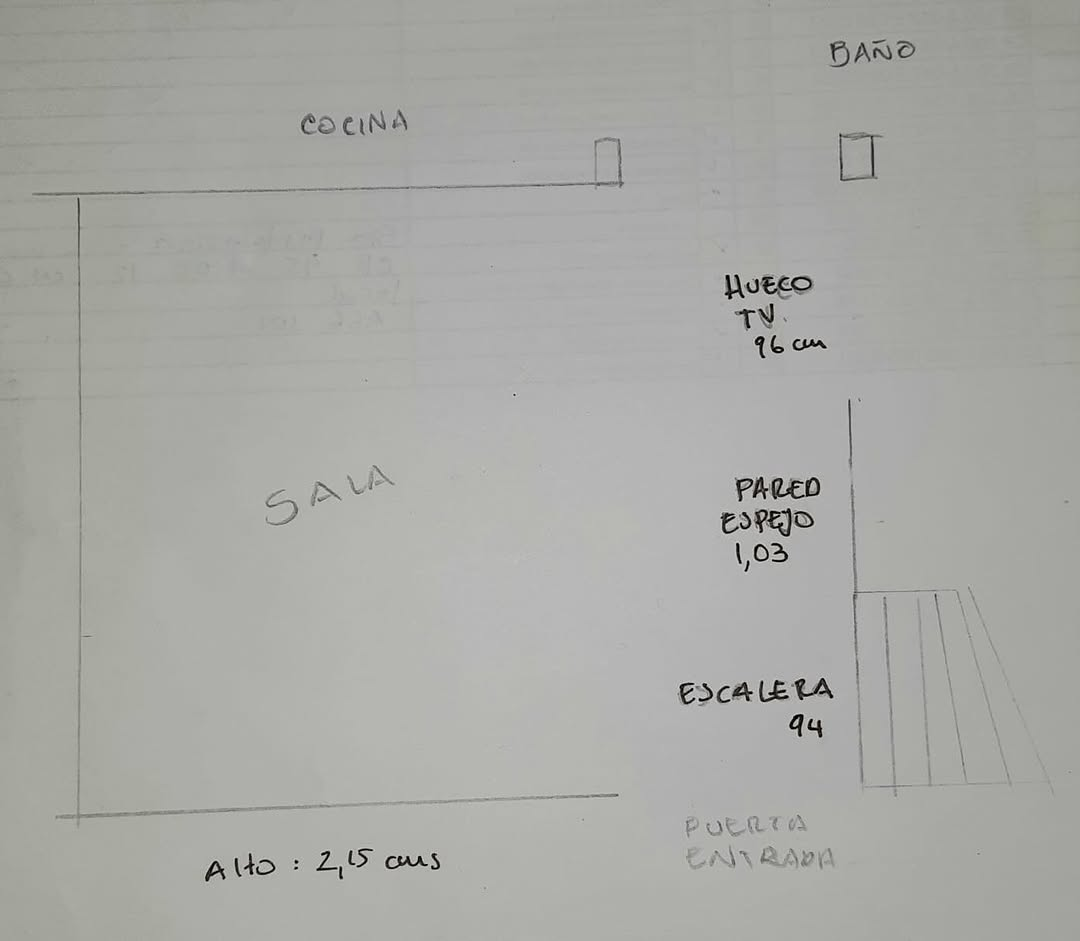 BAÑO
COCINA
HUECO
TV.
96 cm
SALA
PARED
ESPEJO
1,03
ESCALERA
94
PUERTA
ENTRADA
Alto : 2,15 cms